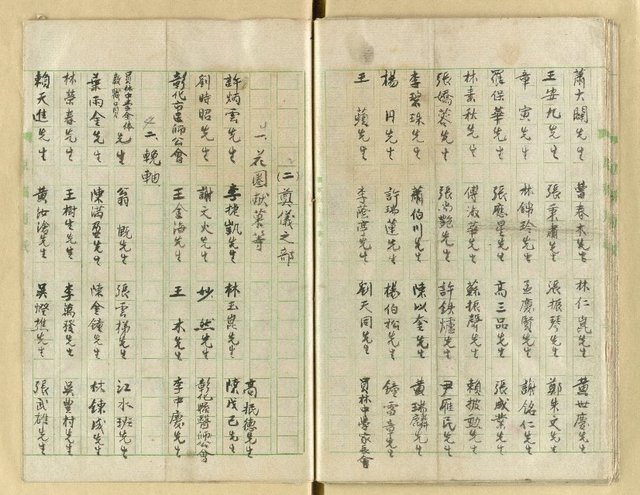 蕭大開先生 曹春木先生 林仁崑先生 黃世慶先生
王安九先生 張秉肅先生 張振琴先生 鄭朱文先生
章寅先生 林錦玲先生 孟慶賢先生 謝銘仁先生
羅保華先生 張應星先生 高三品先生 張咸業先生
林素秋先生 傅淑華先生 蘇振聲先生 賴披勤先生
張嬌蓉先生 張尚艷先生 許鉄爐先生 尹雁民先生
李碧珠先生 蕭伯川先生 陳以全先生 黃瑞麟先生
楊月先生 許瑞蓮先生 楊伯松先生 鐘雪喜先生
王蘋先生 李蔭亭先生 劉天同先生 員林中學家長會
(二)奠儀之部
一、花圈献菓等
高振德先生
許炳雲先生 李捷凱先生 林玉崑先生 陳戊己先生
劉時昭先生 謝文火先生 妙然先生 彰化縣醫師公會
彰化市醫師公會 王金海先生 王木先生 李中慶先生
二、輓軸
員林中學全体教職員先生 翁慨先生 張雲梯先生 江水班先生
葉雨金先生 陳滿盈先生 陳金鐘先生 林鍊成先生
林榮春先生 王樹生先生 李萬發先生 吳豐村先生
賴天進先生 黃汝滄先生 吳燈推先生 張武雄先生